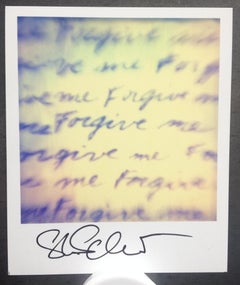 Forgive me
give me Forg
ive me Forgive
Forgive me
orgive me Forg
me Forgive me
Forgive me